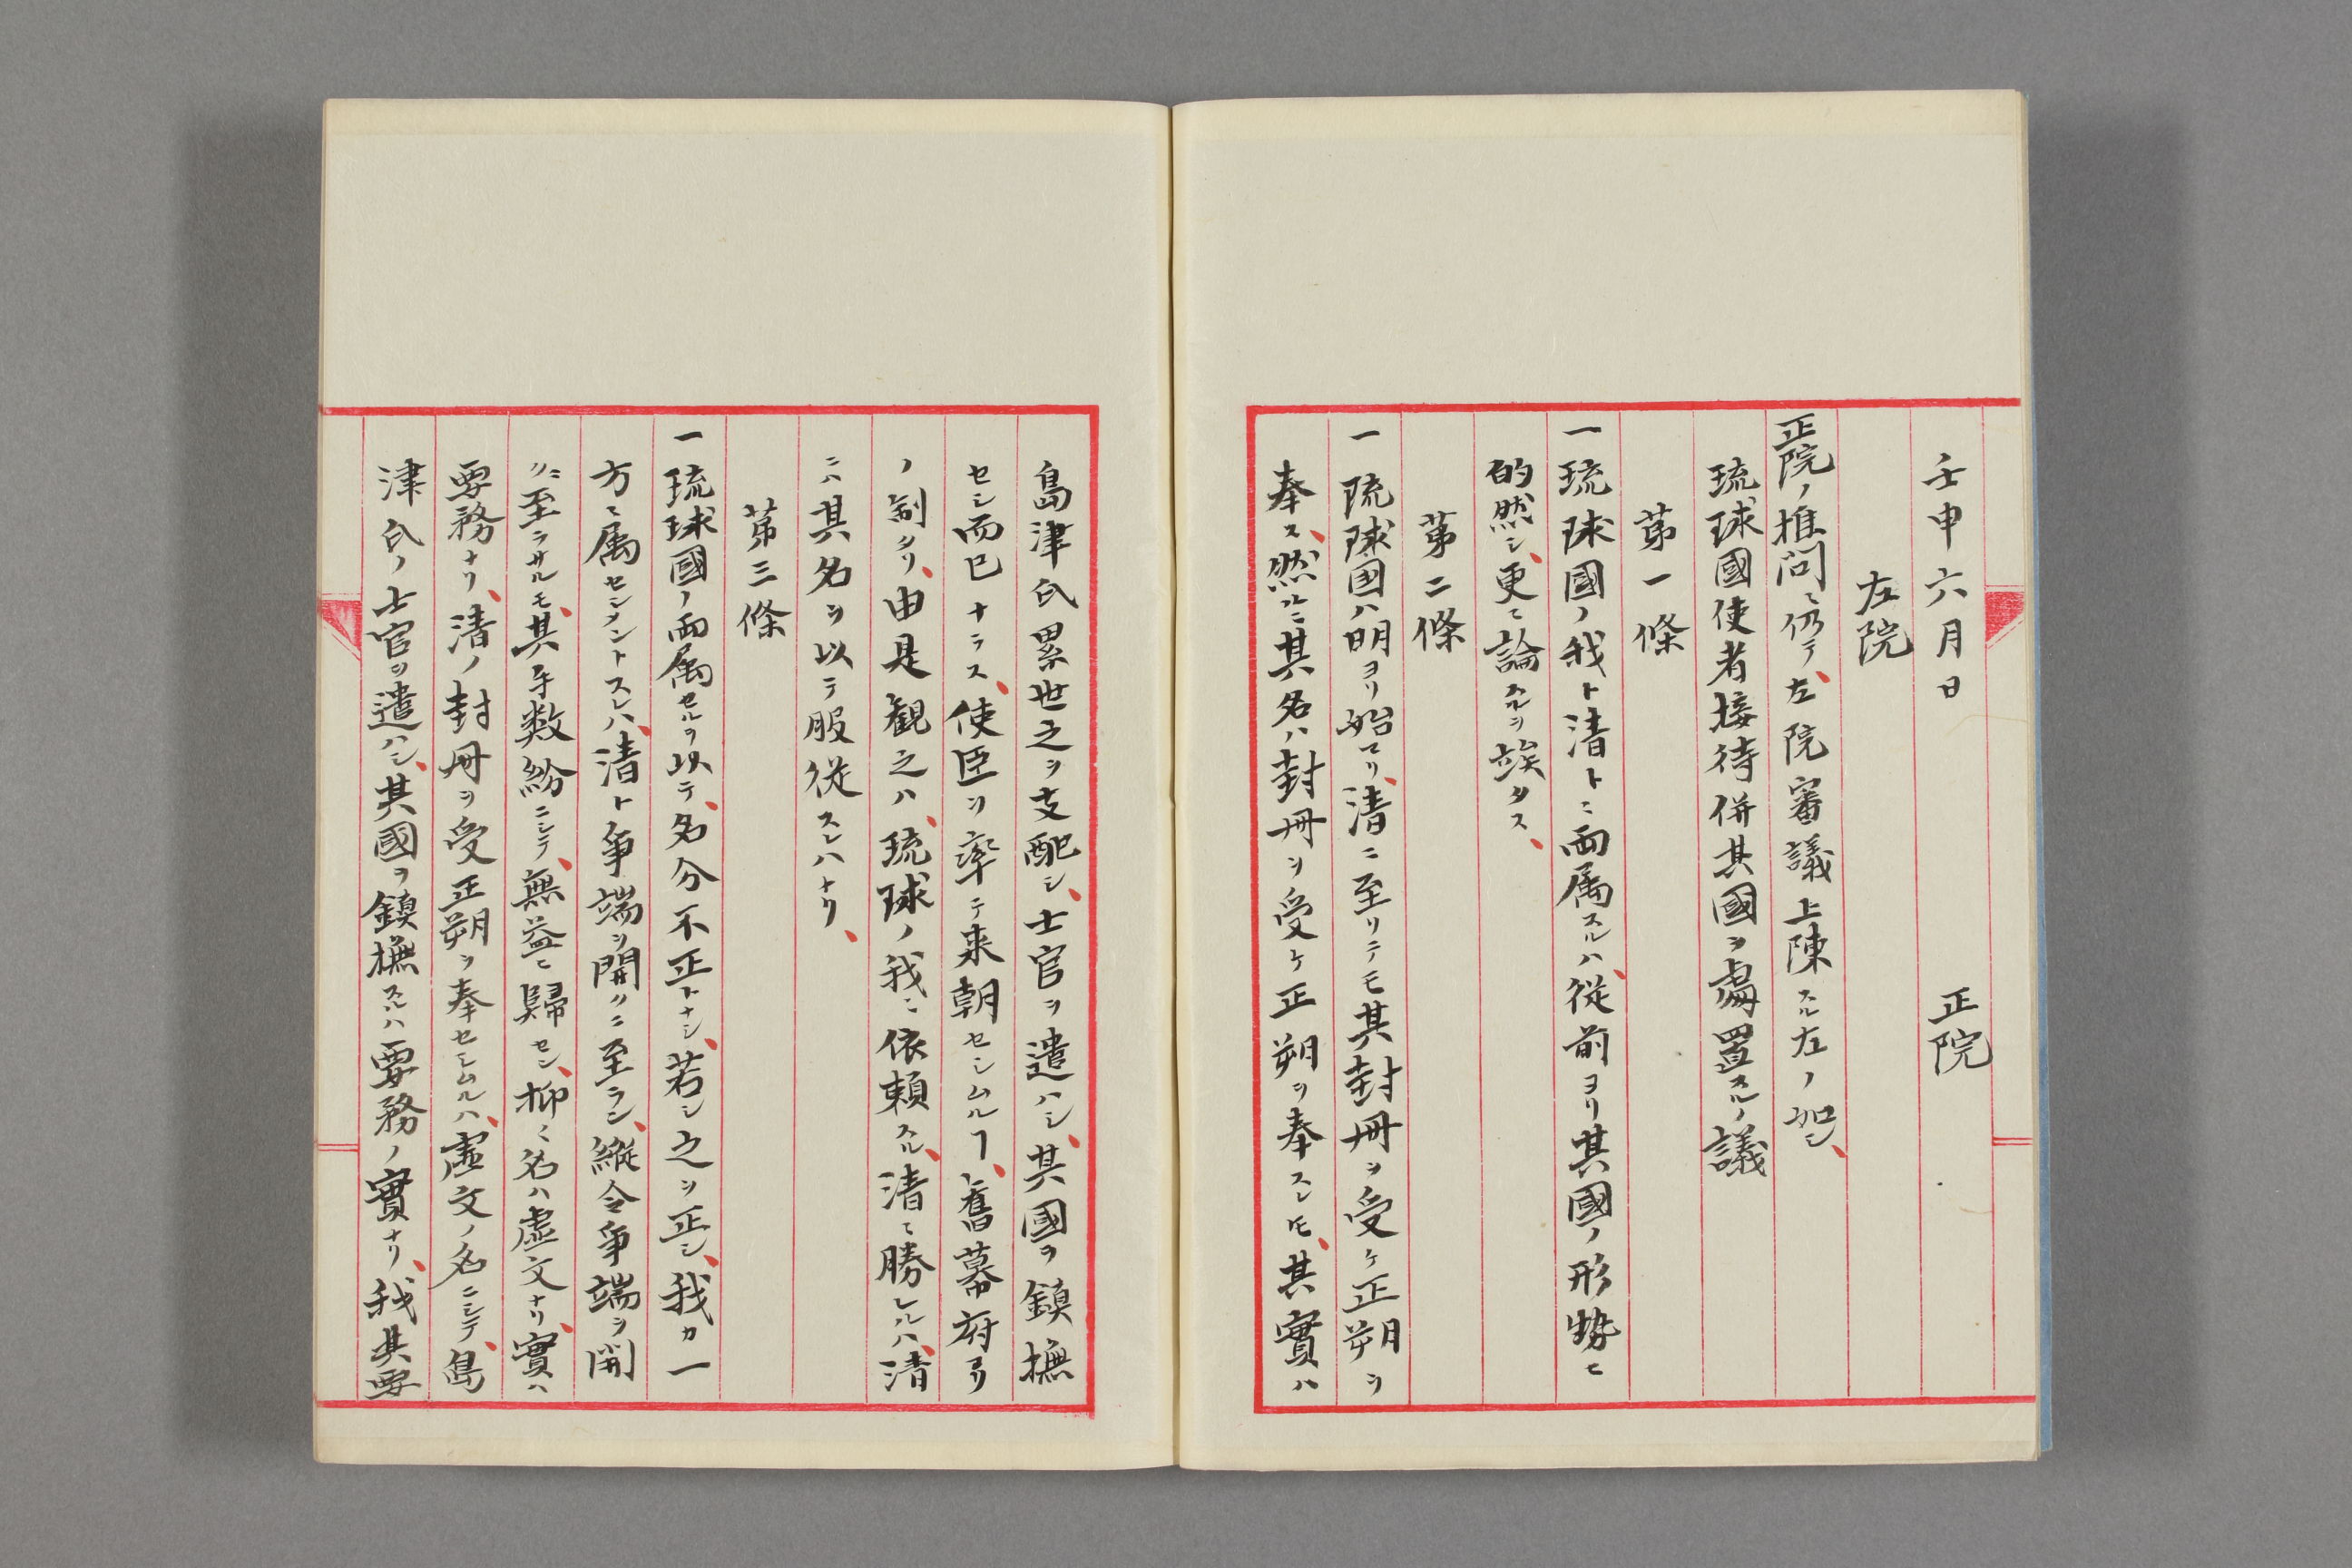 壬申六月日　　　　　正院
左院
正院ノ推問ニ仍テ、左院審議上陳スル左ノ如シ、
琉球國使者接待併其國ヲ處置スルノ議
第一條
一琉球國ノ我ト清トニ両属スルハ、従前ヨリ其國ノ形勢ニ
的然シ、更ニ論スルヲ竢タス、
第二條
一琉球國ハ明ヨリ始マリ、清ニ至リテモ其封冊ヲ受ケ正朔ヲ
奉ス、然ルニ其名ハ封冊ヲ受ケ正朔ヲ奉スレヒ、其實ハ
島津氏累世之ヲ支配シ、士官ヲ遣ハシ、其國ヲ鎮撫
セシ而已ナラス、使臣ヲ率テ来朝セシムルヿ、舊幕府ヨリ
ノ制タリ、由是観之ハ、琉球ノ我ニ依頼スル、清ニ勝レルハ、清
ニハ其名ヲ以テ服従スレハナリ、
第三條
一琉球國ノ両属セルヲ以テ、名分不正トナシ、若シ之ヲ正シ、我カ一
方ニ属セシメントスレハ、清ト争端ヲ開クニ至ラン、縦令争端ヲ開
クニ至ラサルモ、其手数紛ニシテ、無益ニ歸セン、抑ミ名ハ虚文ナリ、實ハ
要務ナリ、清ノ封冊ヲ受正朔ヲ奉セシムルハ、虚文ノ名ニシテ、島
津氏ノ士官ヲ遣ハシ、其國ヲ鎮撫スルハ要務ノ實ナリ、我其要